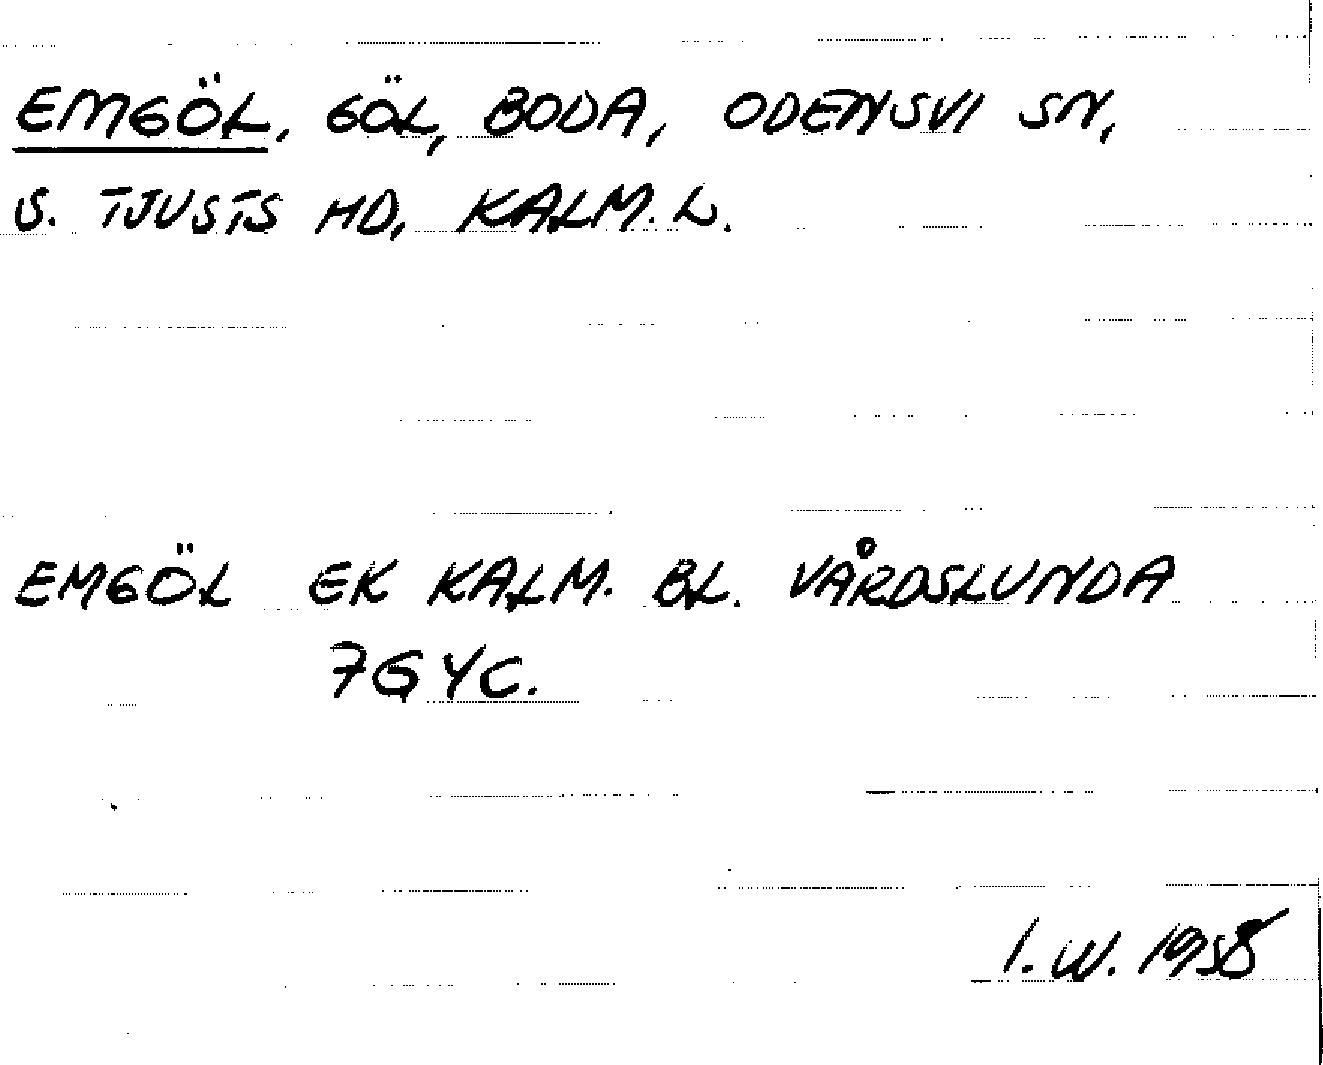 EMGÖL, GÖL, BODA, ODENSVI SN,
S. TJUSTS HD, KALM. L.
EMGÖL EK KALM. BL. VÅRDSLUNDA
7G YC.
I. W. 1958